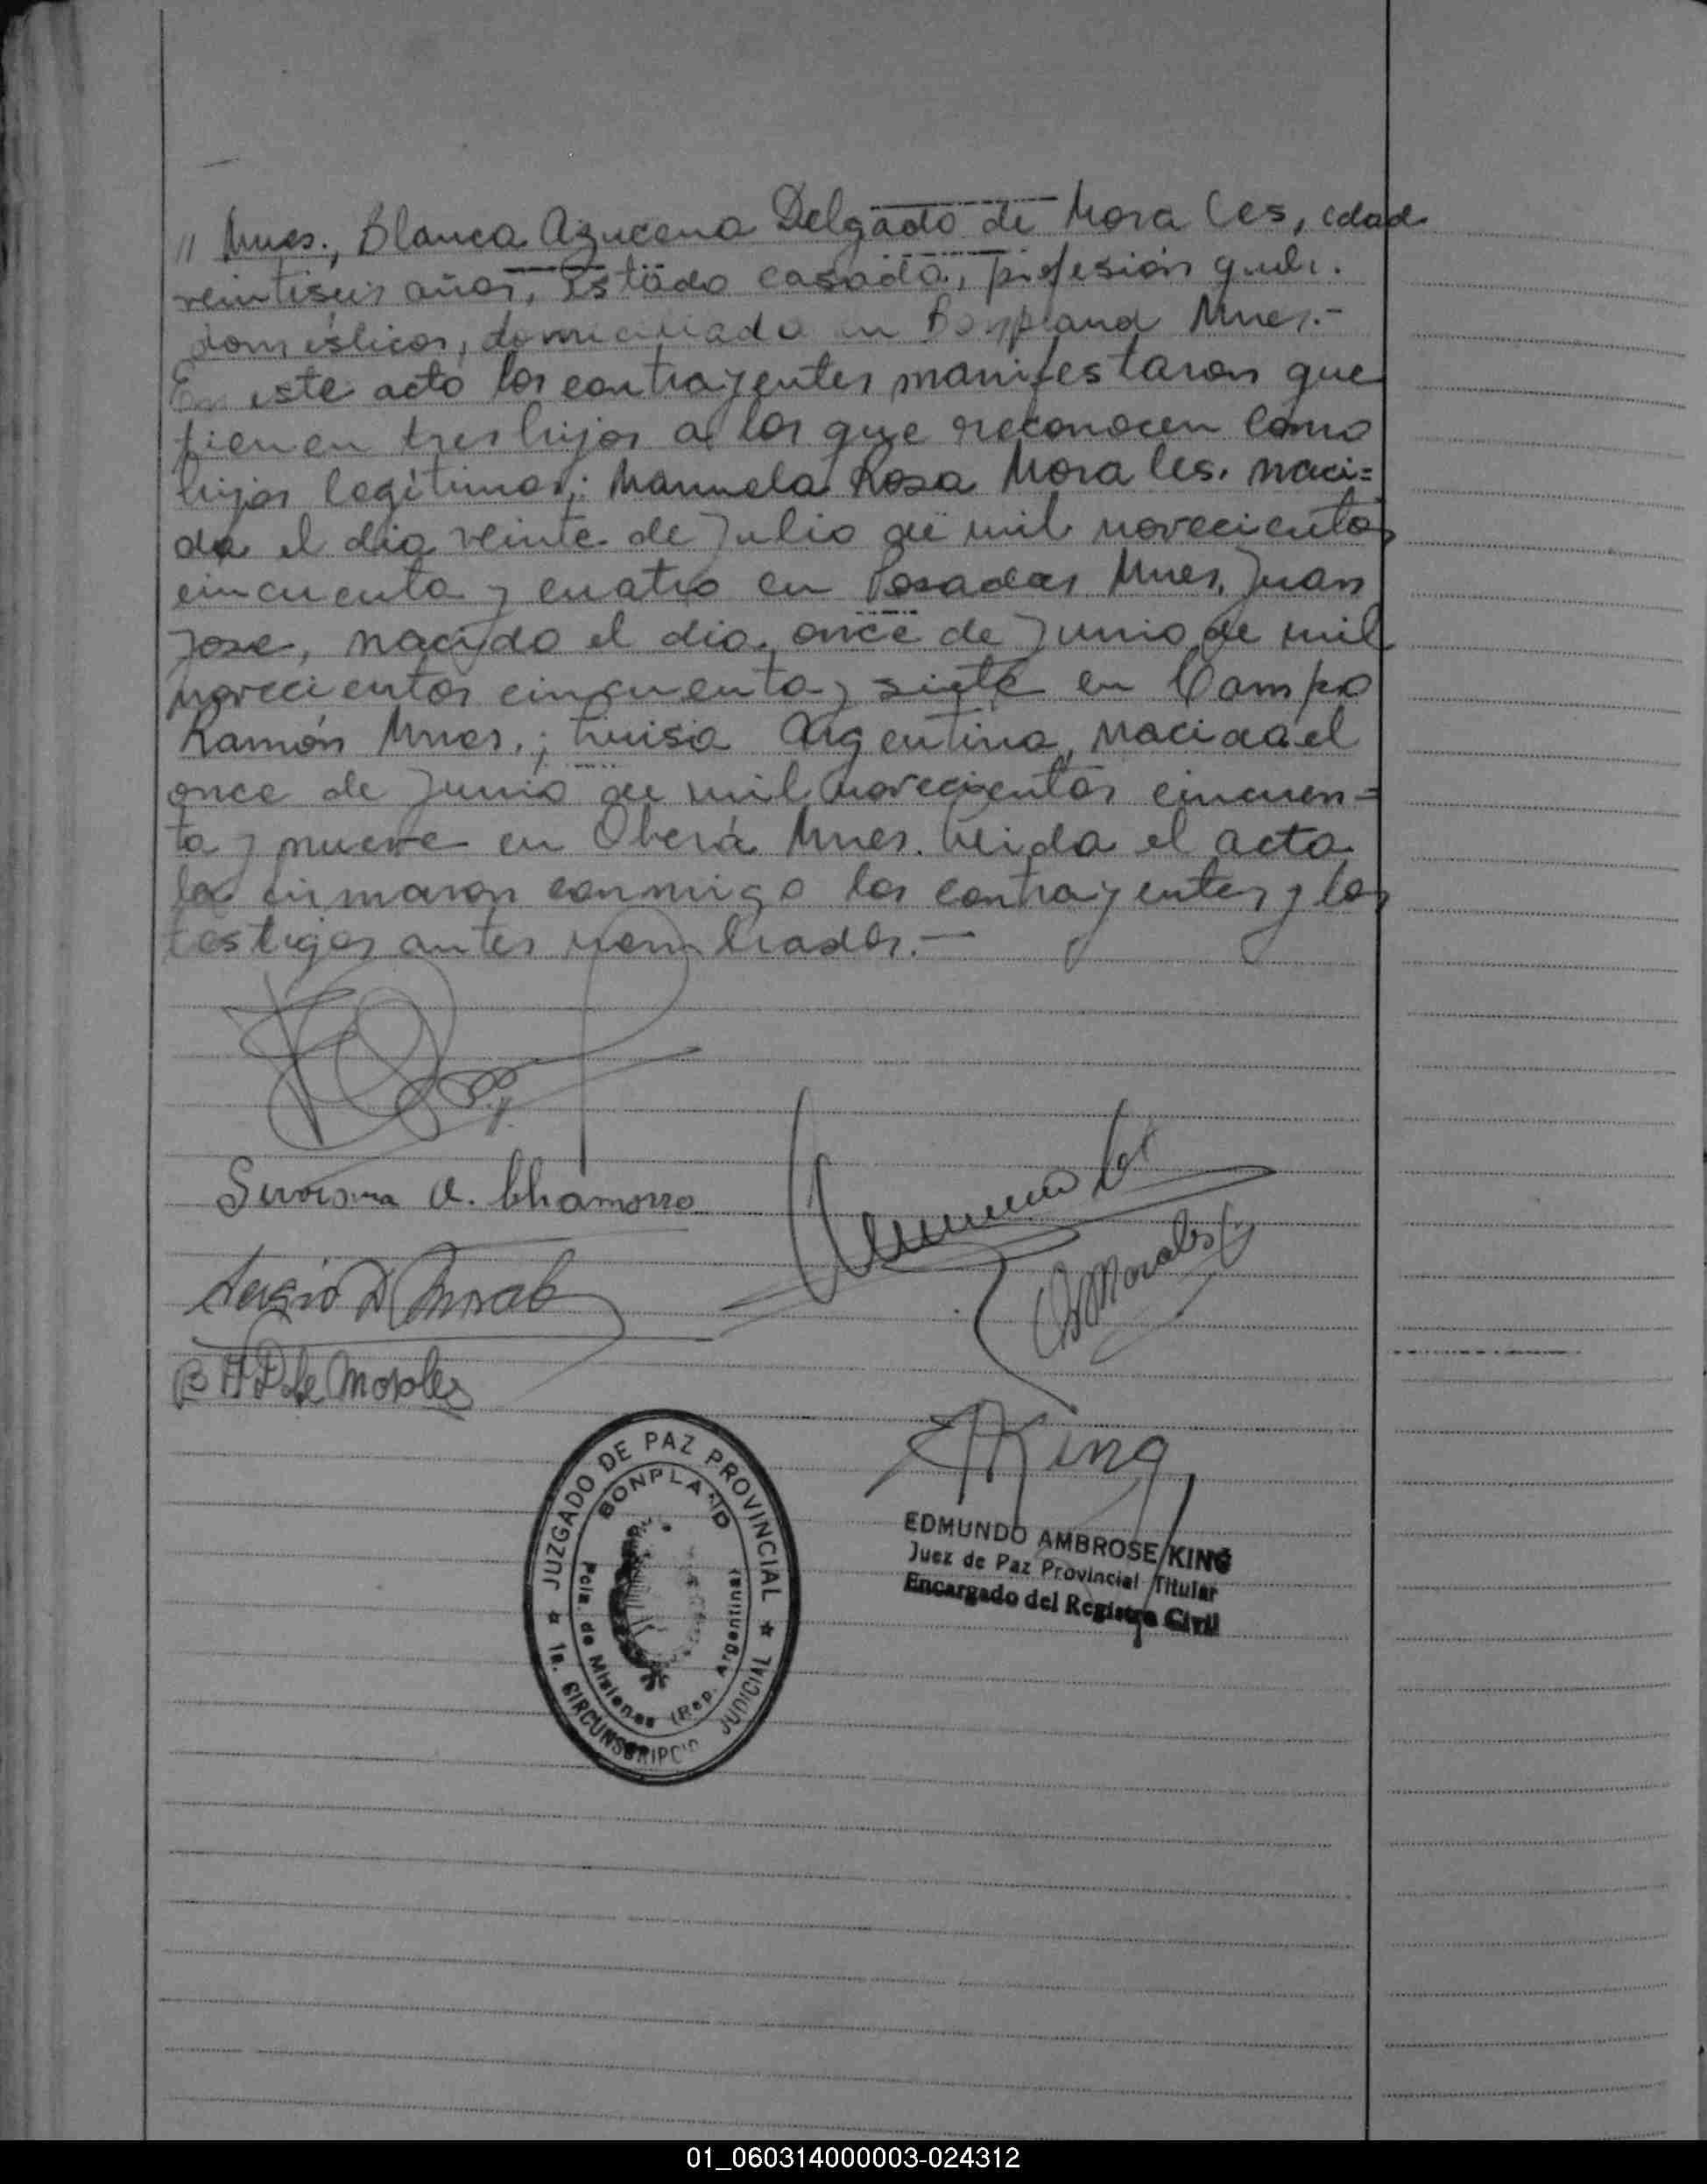 " Mnes., Blanca Azucena Delgado de Morales, edad
veintiseis años, Estado casada, profesión queh.
domésticos, domiciliada en Bonpland Mnes.-
En este acto los contrayentes manifestaron que
tienen tres hijos a los que reconocen como
hijos legítimos; Manuela Rosa Morales, naci=
da el dia veinte de Julio de mil novecientos
cincuenta y cuatro en Posadas Mnes, Juan
José, nacido el dia once de Junio de mil
novecientos cincuenta y siete en Campo
Ramón Mnes.; Luisa Argentina, nacida el
once de Junio de mil novecientos cincuen=
ta y nueve en Oberá Mnes. Leida el acta
la firmaron conmigo los contrayentes y los
testigos antes nombrados.-
A. Chamorro
Sergio D
B A D de Morales
Morales
EKing
JUZGADO DE PAZ PROVINCIAL
BONPLAND
Pcia. de Misiones (Rep. Argentina)
1a. CIRCUNSCRIPCIO JUDICIAL
EDMUNDO AMBROSE KING
Juez de Paz Provincial Titular
Encargado del Registro Civil
01_060314000003-024312